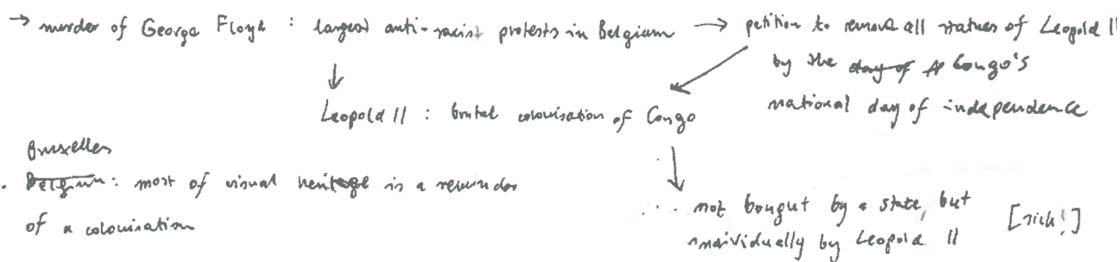 → murder of George Floyd : largest anti-racist protests in Belgium → petition to remove all statues of Leopold II
by the day of Congo's
national day of independence
Leopold II : brutal colonisation of Congo
Bruxelles
. Belgium: most of visual heritage is a reminder
of a colonisation
... not bought by a state, but
individually by Leopold II [rich!]